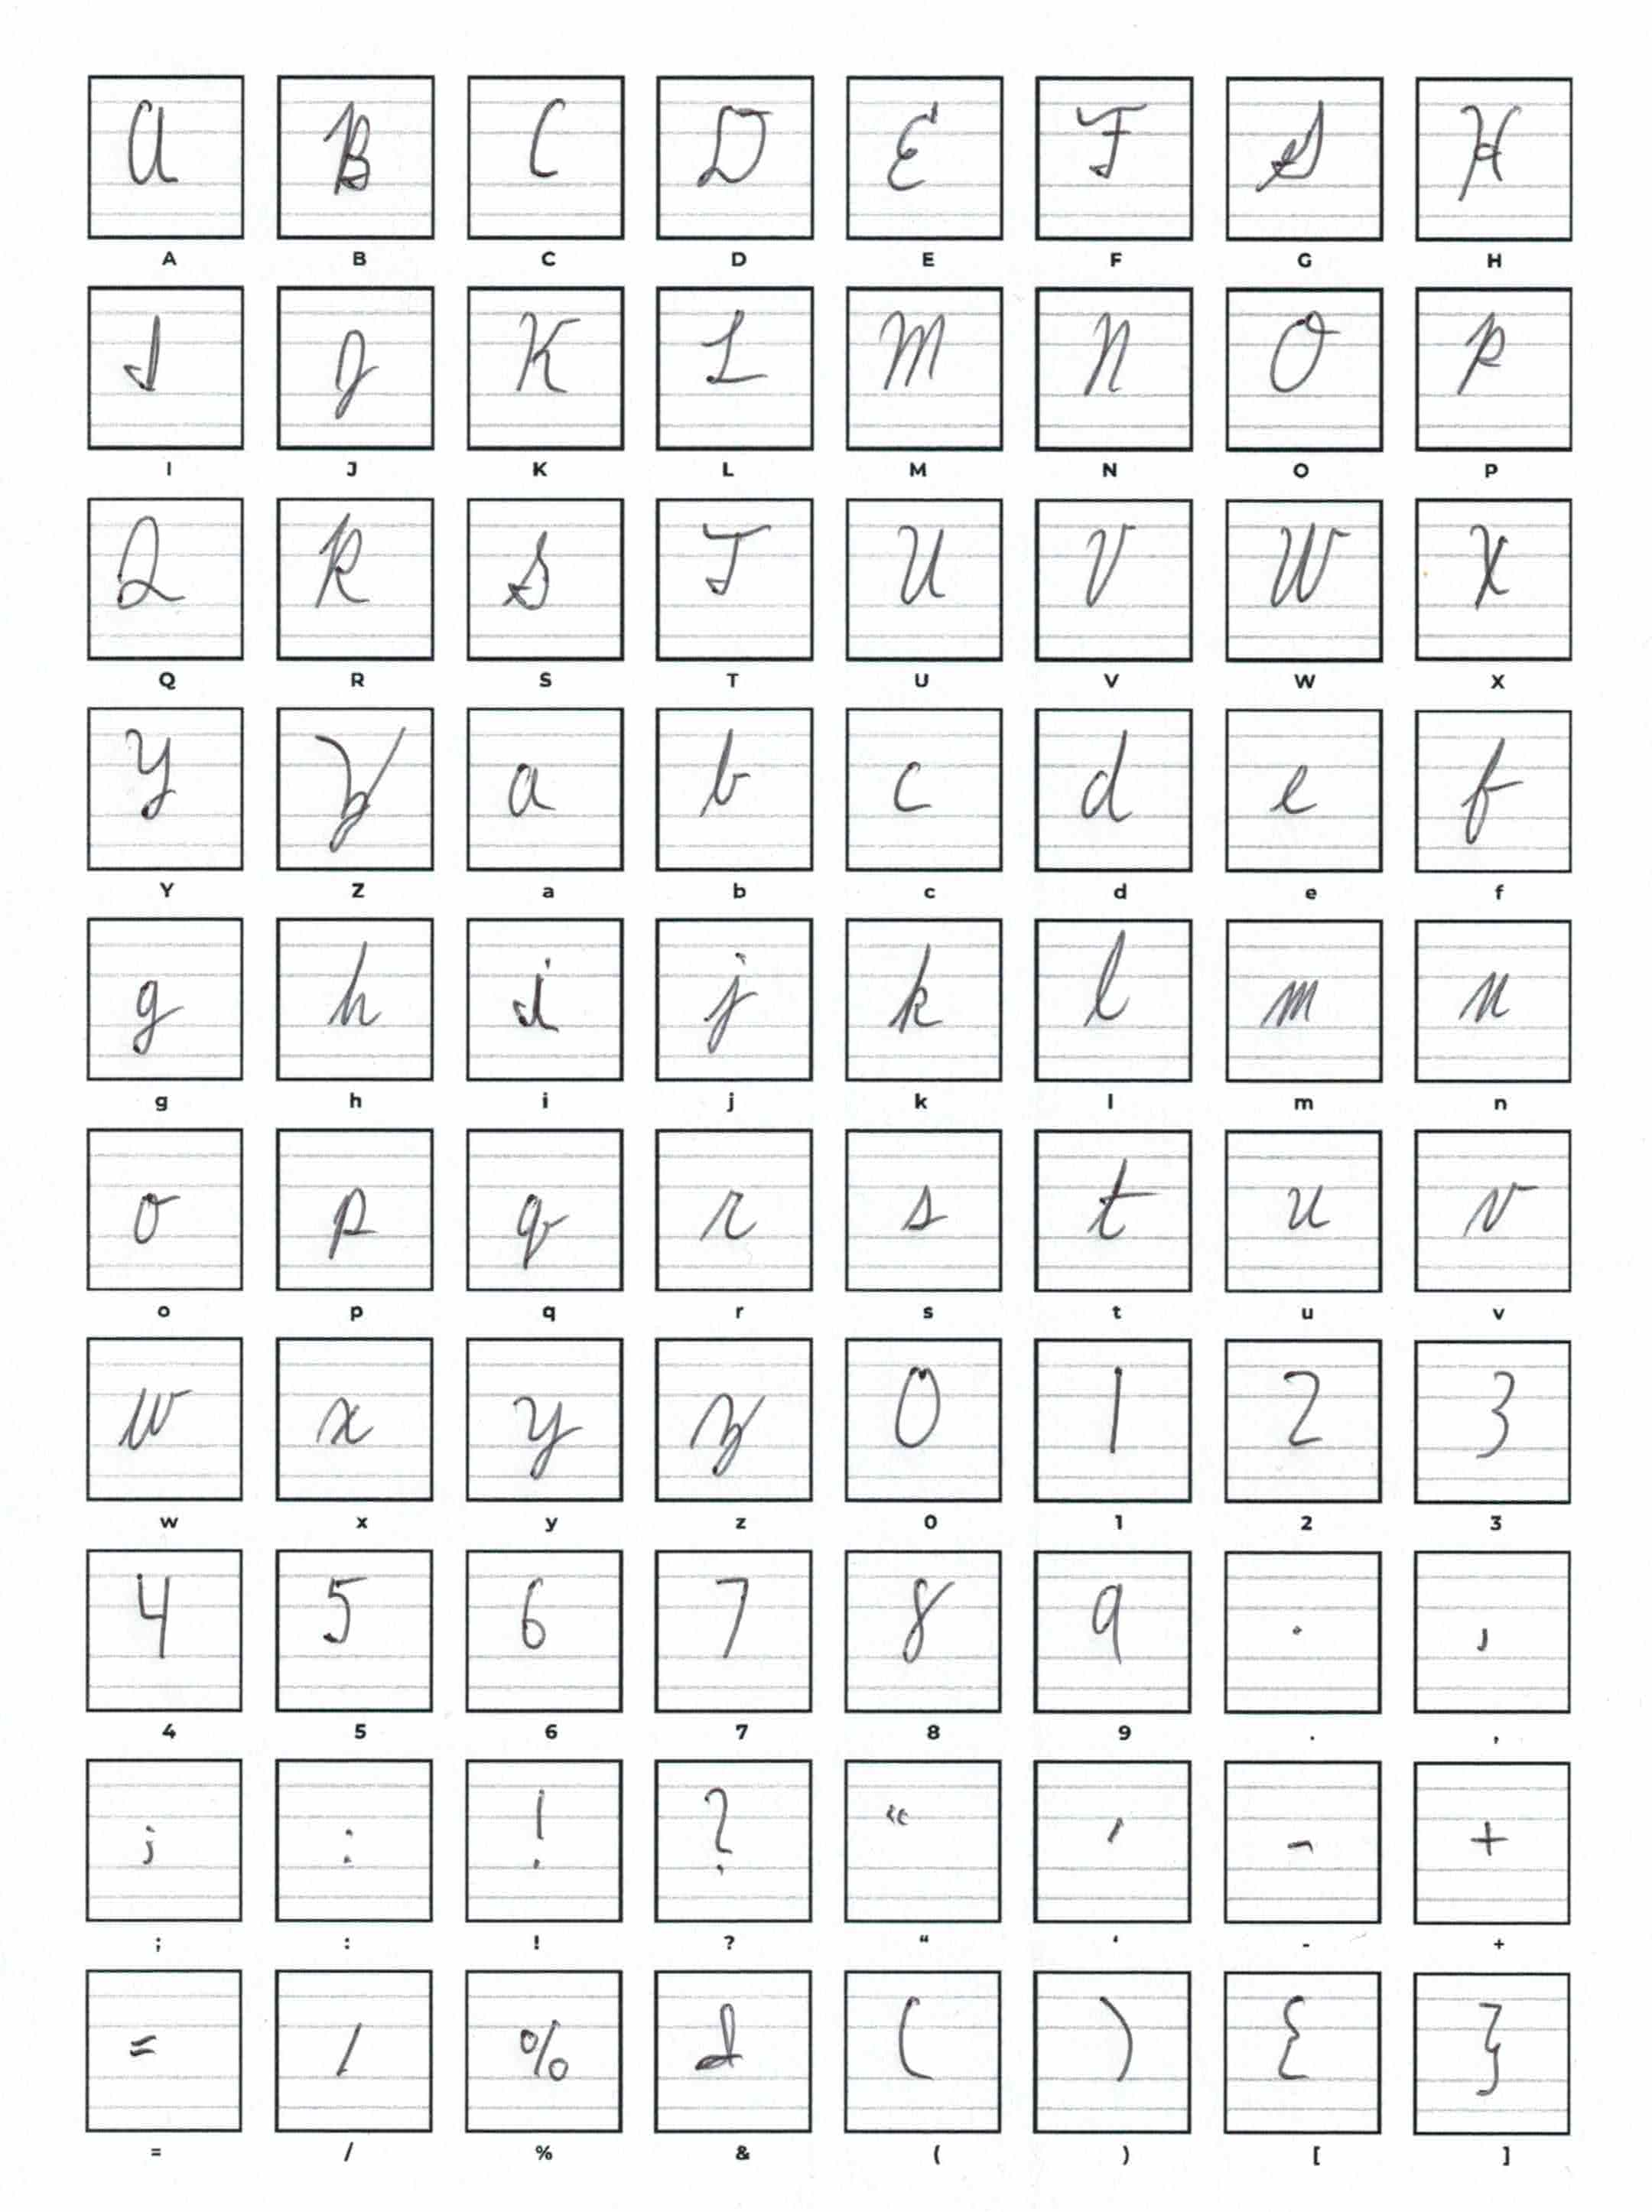 A B C D E F G H
A B C D E F G H
I J K L M N O P
I J K L M N O P
Q R S T U V W X
Q R S T U V W X
Y Z a b c d e f
Y Z a b c d e f
g h i j k l m n
g h i j k l m n
o p q r s t u v
o p q r s t u v
w x y z 0 1 2 3
w x y z 0 1 2 3
4 5 6 7 8 9 . ,
4 5 6 7 8 9 . ,
; : ! ? “ ‘ - +
; : ! ? “ ‘ - +
= / % & ( ) { }
= / % & ( ) [ ]